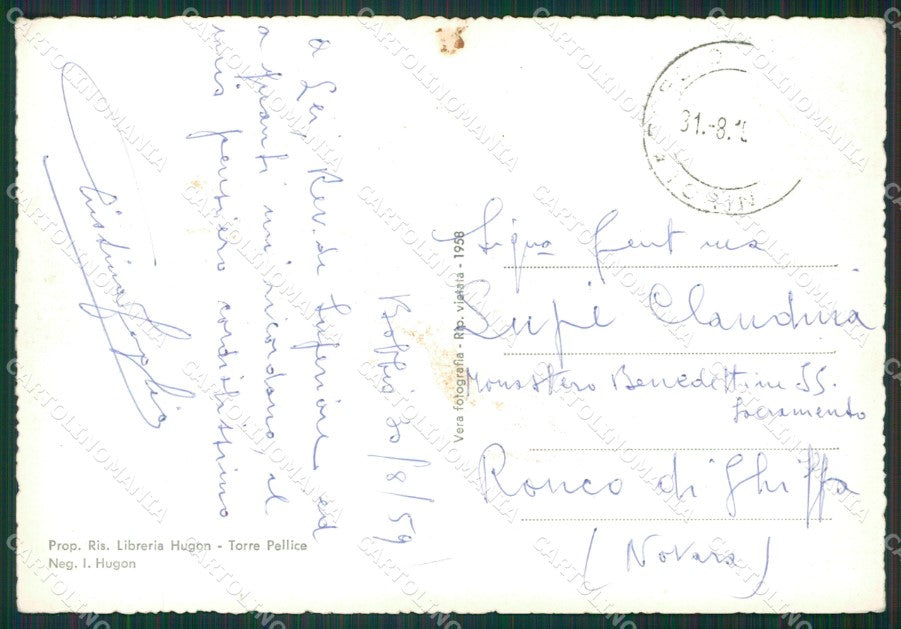 Bobbio 30/8/59
a Lei, Rev. da Superiora ed
a quanti mi ricordano, il
mio pensiero cordialissimo
Prop. Ris. Libreria Hugon - Torre Pellice
Neg. I. Hugon
Vera fotografia - Rip. vietata - 1958
31.-8.
TORIN
Sig.na
Lupi Claudina
Monastero Benedettine SS.
Sacramento
Ronco di Ghiffa
(Novara)
CARTOLINOMANIA